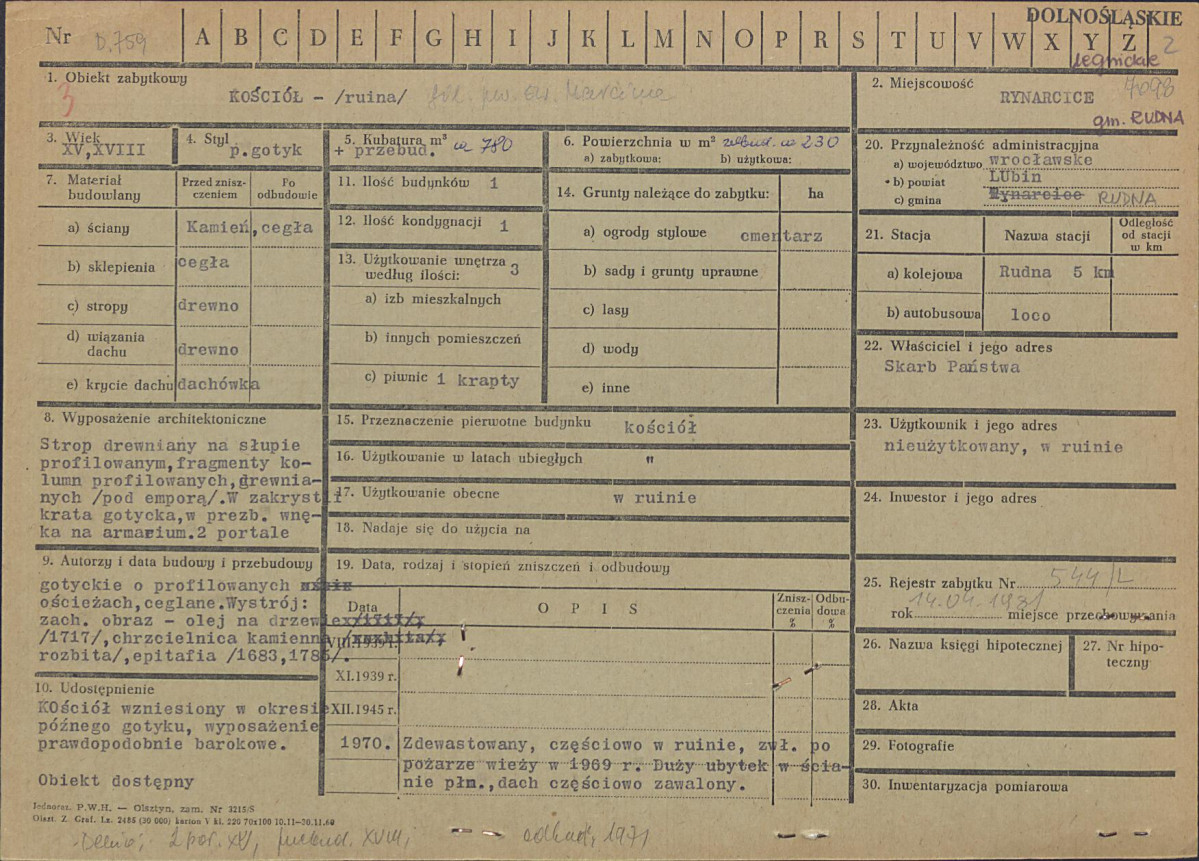 DOLNOŚLĄSKIE
Nr D.759 A B C D E F G H I J K L M N O P R S T U V W X Y Z 2
legnickie
1. Obiekt zabytkowy
KOŚCIÓŁ - /ruina/ fil. pw. św. Marcina
3
2. Miejscowość
7098
RYNARCICE
gm. RUDNA
3. Wiek
XV,XVIII
4. Styl
p.gotyk
5. Kubatura m³ ca 780
+ przebud.
6. Powierzchnia w m² zabud. ca 230
a) zabytkowa: b) użytkowa:
20. Przynależność administracyjna
a) województwo wrocławske
b) powiat LUbin
c) gmina Rynarcice RUDNA
7. Materiał
budowlany
Przed znisz-
czeniem
Po
odbudowie
a) ściany Kamień,cegła
b) sklepienia cegła
c) stropy drewno
d) wiązania
dachu drewno
e) krycie dachu dachówka
11. Ilość budynków 1
12. Ilość kondygnacji 1
13. Użytkowanie wnętrza
według ilości: 3
a) izb mieszkalnych
b) innych pomieszczeń
c) piwnic 1 krapty
14. Grunty należące do zabytku: ha
a) ogrody stylowe cmentarz
b) sady i grunty uprawne
c) lasy
d) wody
e) inne
21. Stacja Nazwa stacji
Odległość
od stacji
w km
a) kolejowa Rudna 5 km
b) autobusowa loco
22. Właściciel i jego adres
Skarb Państwa
8. Wyposażenie architektoniczne
Strop drewniany na słupie
profilowanym,fragmenty ko-
lumn profilowanych,drewnia-
nych /pod emporą/.W zakrystii
krata gotycka,w prezb. wnę-
ka na armarium.2 portale
15. Przeznaczenie pierwotne budynku kościół
16. Użytkowanie w latach ubiegłych "
17. Użytkowanie obecne w ruinie
18. Nadaje się do użycia na
23. Użytkownik i jego adres
nieużytkowany, w ruinie
24. Inwestor i jego adres
9. Autorzy i data budowy i przebudowy
gotyckie o profilowanych
ościeżach,ceglane.Wystrój:
zach. obraz - olej na drzewie /1717/,
/1717/,chrzcielnica kamienna /rozbita/,
rozbita/,epitafia /1683,1785/.
19. Data, rodzaj i stopień zniszczeń i odbudowy
Data OPIS
Znisz-
czenia
%
Odbu-
dowa
%
VIII.1939 r.
XI.1939 r.
XII.1945 r.
1970. Zdewastowany, częściowo w ruinie, zwł. po
pożarze wieży w 1969 r. Duży ubytek w ścia-
nie płn.,dach częściowo zawalony.
25. Rejestr zabytku Nr 544/L
14.04.1981
rok miejsce przechowywania
26. Nazwa księgi hipotecznej
27. Nr hipo-
teczny
28. Akta
29. Fotografie
30. Inwentaryzacja pomiarowa
10. Udostępnienie
KOściół wzniesiony w okresie
późnego gotyku, wyposażenie
prawdopodobnie barokowe.
Obiekt dostępny
Jednoraz. P.W.H. — Olsztyn, zam. Nr 3215/S
Olszt. Z. Graf. Lz. 2485 (30 000) karton V kl. 220 70x100 10.11-30.11.60
Dehio; 2 poł. XV, przebud. XVIII; odbud. 1971